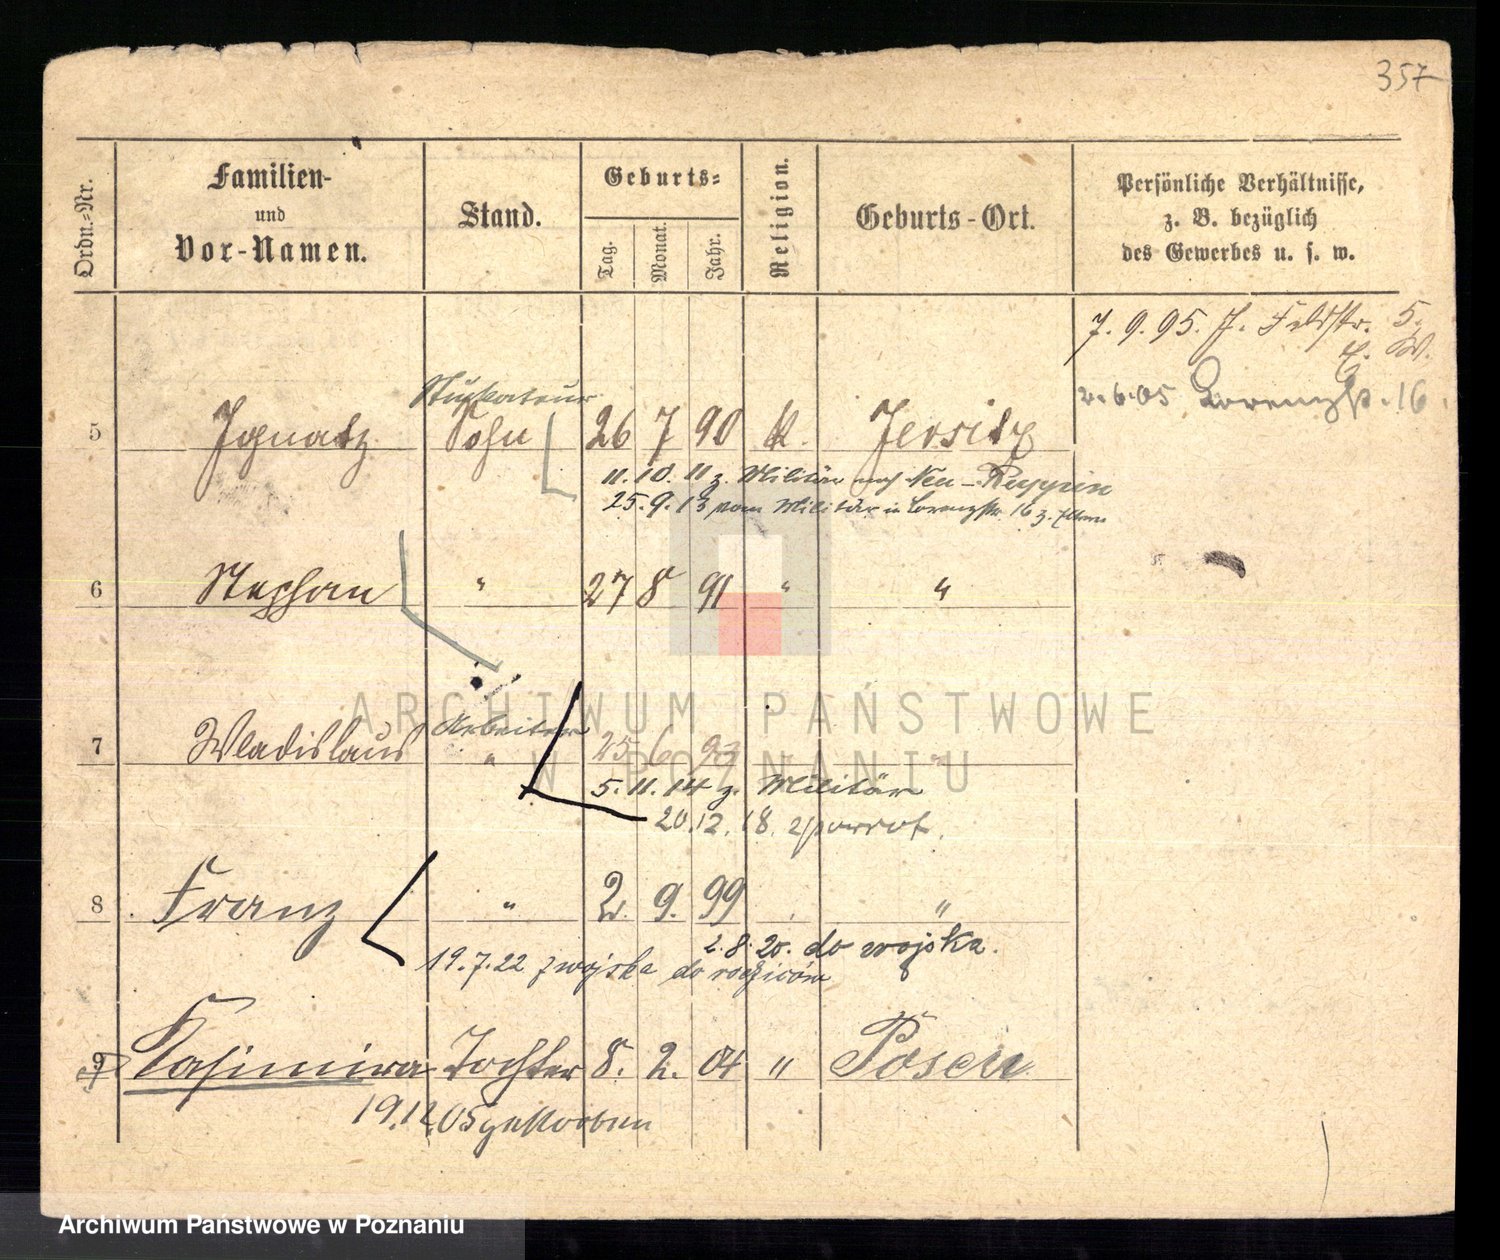 357
Ordn.-Nr.
Familien-
und
Vor-Namen.
Stand.
Geburts-
Tag.
Monat.
Jahr.
Religion.
Geburts-Ort.
Persönliche Verhältnisse,
z. B. bezüglich
des Gewerbes u. s. w.
7. 9. 95. J. Feldstr. 5.
E. W.
2.6.05 Lorenzstr. 16.
Stuckateur
5 Ignatz Sohn 26 7 90 k. Jersitz
11. 10. 11 z. Militär nach Neu-Ruppin
25. 9. 13 vom Militär in Lorenzstr. 16 z. Eltern
6 Stephan " 27 8 91 " "
Arbeiter
7 Wladislaus " 25 6 93 "
5. 11. 14 z. Militär
20.12.18. zurück.
8 Franz " 2. 9. 99 "
2. 8. 20. do wojska.
19.7.22 z wojska do rodziców
9 Kasimira Tochter 8. 2. 04 " Posen
19.12.05 gestorben
ARCHIWUM PAŃSTWOWE
W POZNANIU
Archiwum Państwowe w Poznaniu